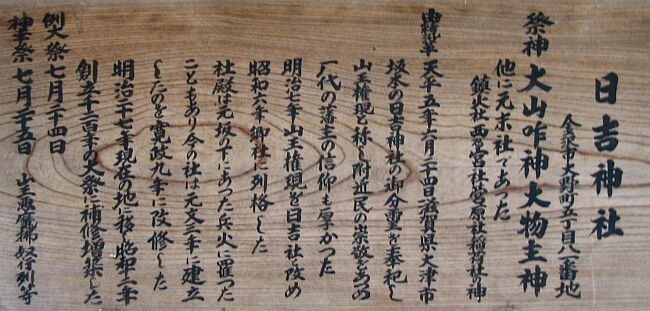 日吉神社
金沢市大野町五丁目八一番地
祭神 大山咋神 大物主神
他に元末社であった
鎮火社西の宮社菅原社稲荷社の神
由緒 天平五年六月二十四日滋賀県大津市
坂本の日吉神社の御分霊を奉祀し
山王権現と称し附近民の崇敬をあつめ
代の藩主の信仰も厚かった
明治七年山王権現を日吉社改め
昭和六年郷社に列格した
社殿は元坂の下にあった兵火に罹った
こともあり今の社は元文三年に建立
したのを寛政九年に改修した
明治二十七年現在の地に移し昭和二年
創立千二百年の大祭に補修増築した
例大祭 七月二十四日
祭 七月二十五日 山王悪魔佛奴行列等